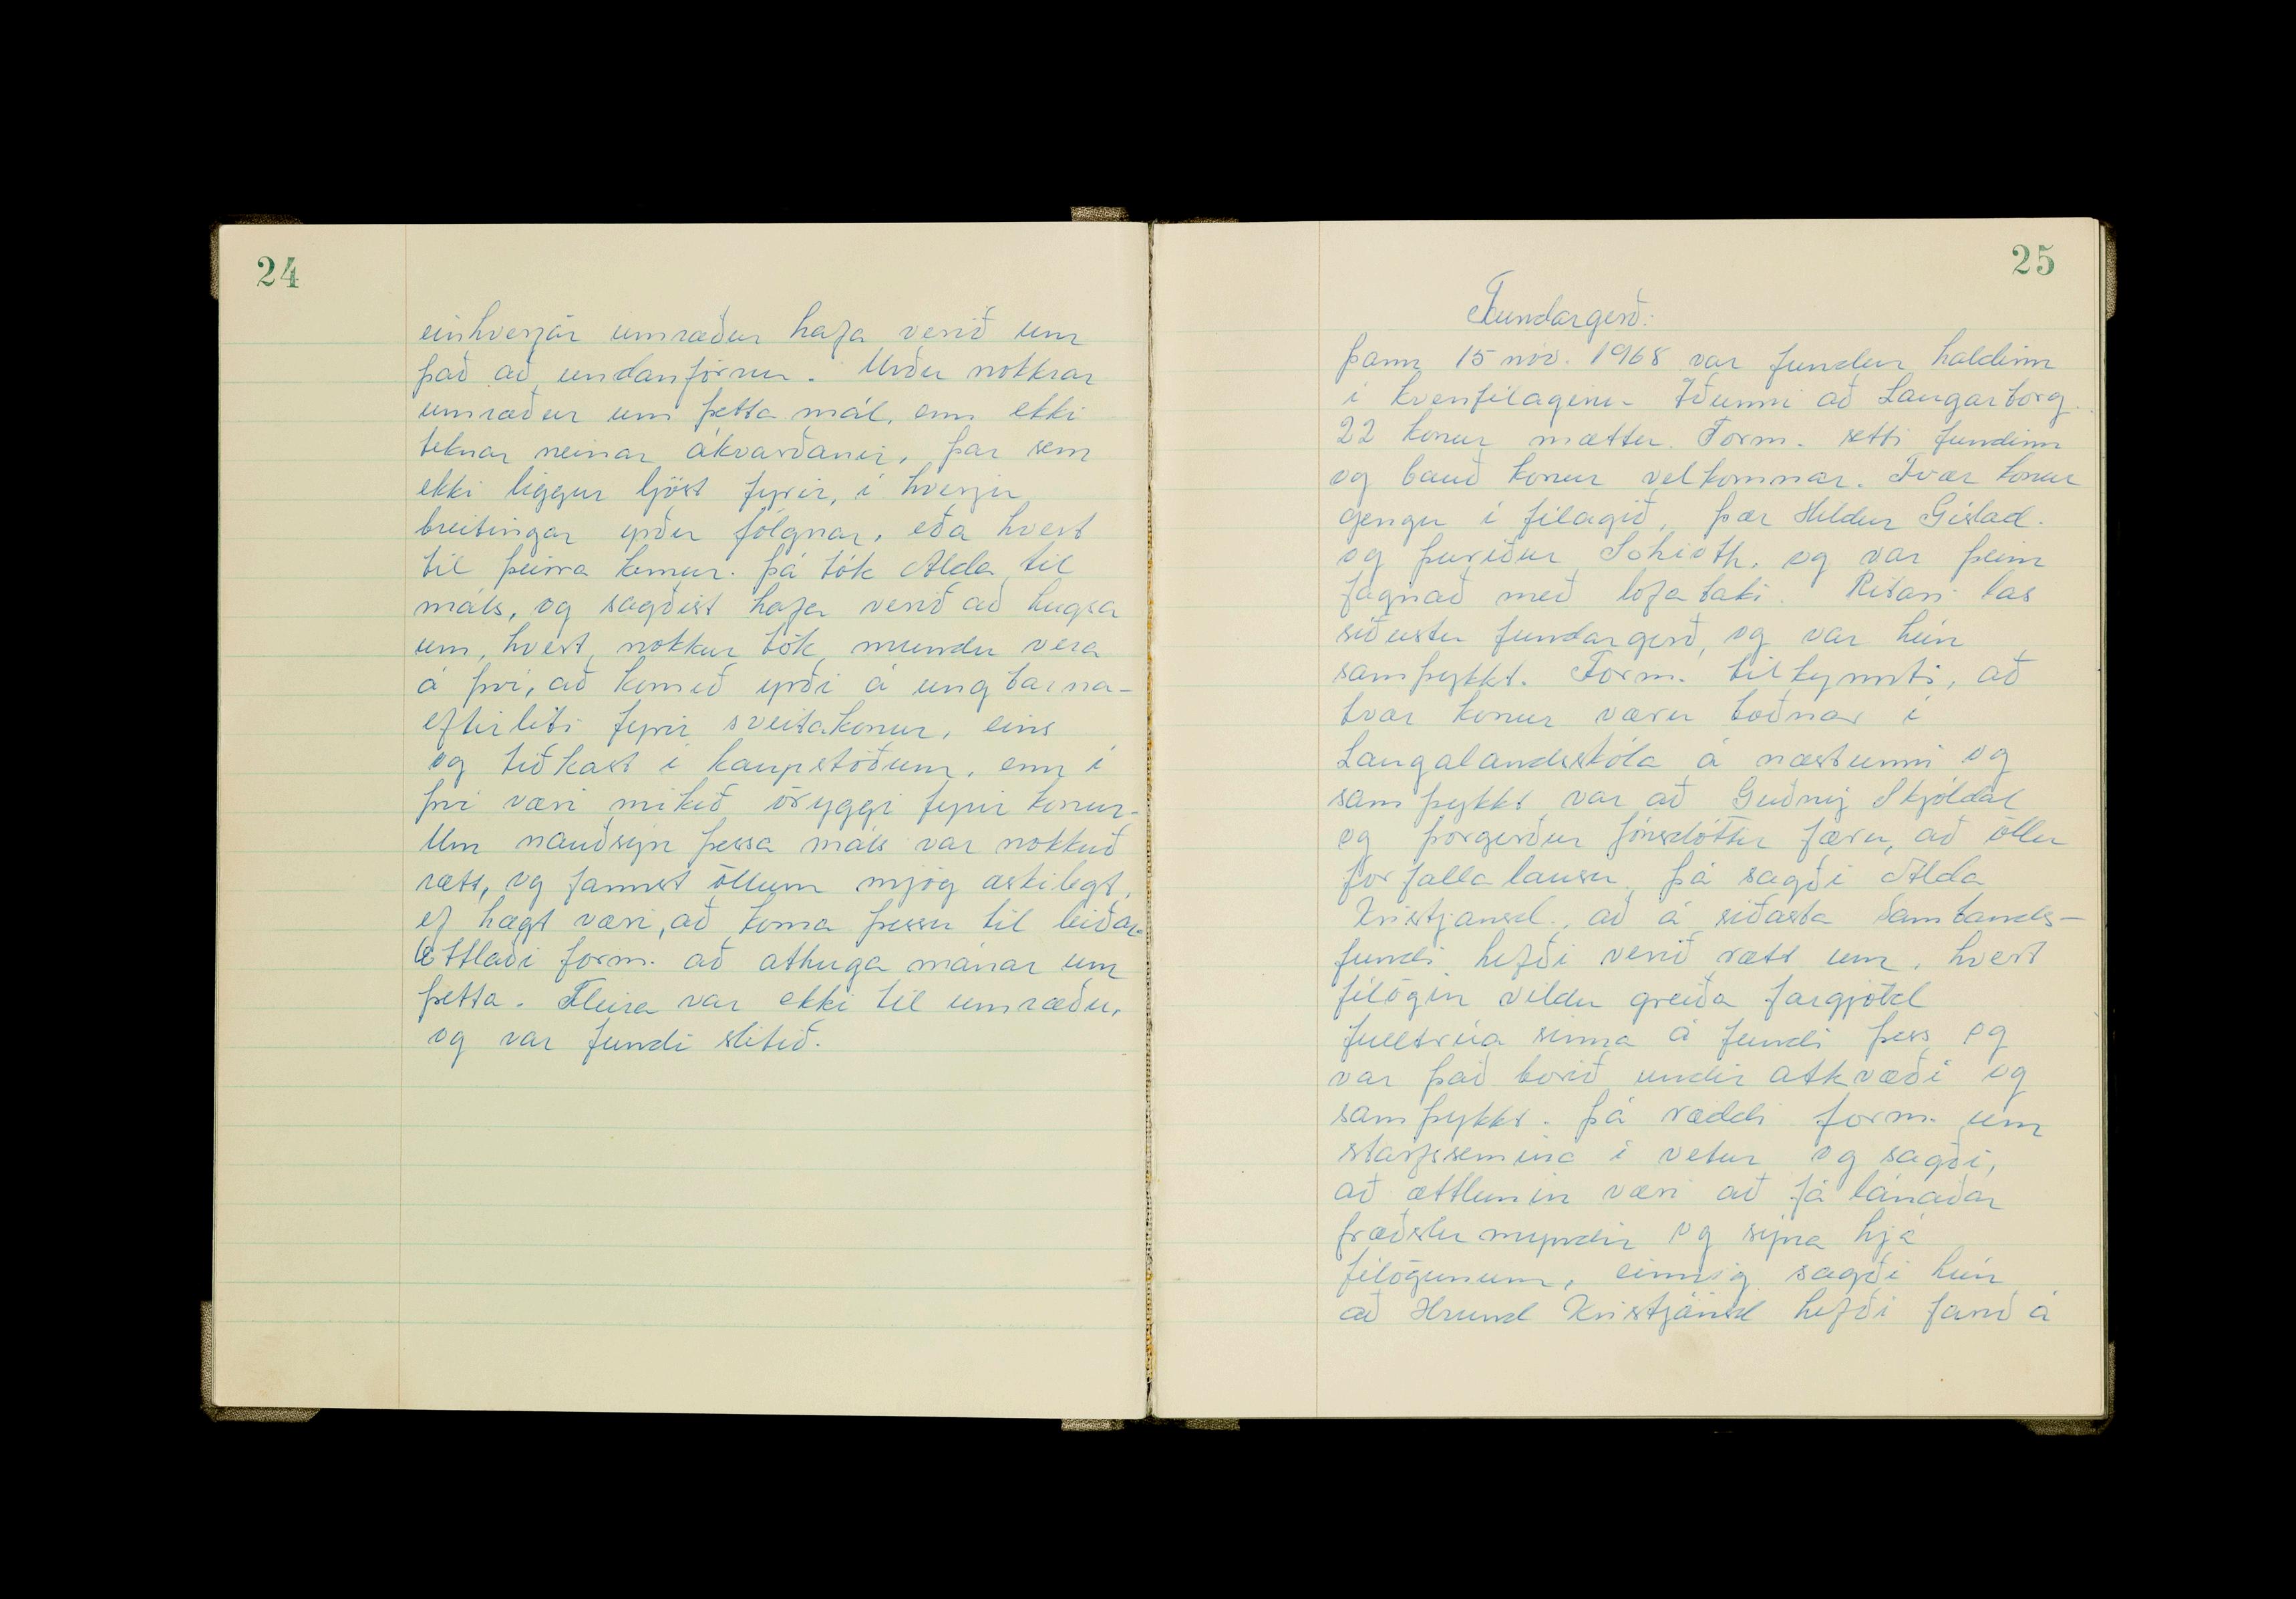 24
einhverjar umræður hafa verið um
það að undanförnu. Urðu nokkrar
umræður um þetta mál, enn ekki
teknar neinar ákvarðanir, þar sem
ekki liggur ljóst fyrir, í hverju
breitingar yrðu fólgnar, eða hvert
til þeirra kemur. Þá tók Alda til
máls, og sagðist hafa verið að hugsa
um, hvert nokkur tök mundu vera
á því, að komið yrði á ungbarna-
eftirliti fyrir sveitakonur, eins
og tíðkast í kaupstöðum, enn í
því væri mikið öryggi fyrir konur.
Um nauðsyn þessa máls var nokkuð
rætt, og fannst öllum mjög æskilegt,
ef hægt væri, að koma þessu til leiðar.
Ættlaði form. að athuga mánar um
þetta. Fleira var ekki til umræðu,
og var fundi slitið.
25
Fundargerð:
Þann 15 nóv. 1968 var fundur haldinn
í kvenfélaginu Iðunni að Laugarborg.
22 konur mættu. Form. setti fundinn
og bauð konur velkomnar. Tvær konur
gengu í félagið, þær Hildur Gíslad.
og Þuríður Schiöth, og var þeim
fagnað með lófataki. Ritari las
síðustu fundargerð, og var hún
samþykkt. Form. tilkynnti, að
tvær konur væru boðnar í
Laugalandsskóla á næstunni og
samþykkt var að Guðný Skjóldal
og Þorgerður Jónsdóttir færu, að öllu
forfallalausu. Þá sagði Alda
Kristjansd., að á síðasta Sambands-
fundi hefði verið rætt um, hvert
félögin vildu greiða fargjöld
fulltrúa sinna á fundi þess og
var það borið undir atkvæði og
samþykkt. Þá ræddi form. um
starfssemina í vetur og sagði,
að ættlunin væri að fá lánaðar
fræðslumyndir og sýna hjá
félögunum, einnig sagði hún
að Hrund Kristjánsd hefði farið á